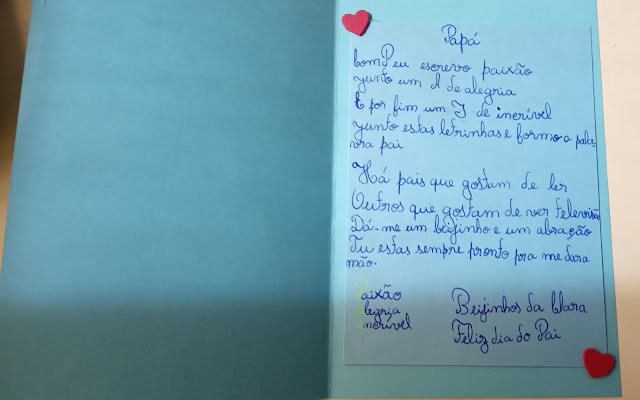 Papá
bom P eu escrevo paixão
yunto um A de alegria
E por fim um I de incrível
yunto estas letrinhas e formo a pala-
vra pai
Há pais que gostam de ler
Outros que gostam de ver televisão
Dá-me um beijinho e um abração
Tu estas sempre pronto pra me dar a
mão.
Paixão
alegria
incrível
Beijinhos da Clara
Feliz dia do Pai